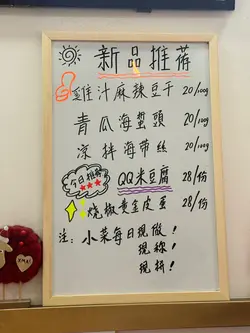 新品推荐
雞汁麻辣豆干 20/100g
青瓜海蜇頭 20/100g
凉拌海帶丝 20/100g
今日推荐 QQ米豆腐 28/份
烧椒黄金皮蛋 28/份
注:小菜每日现做!
现称!
现拼!